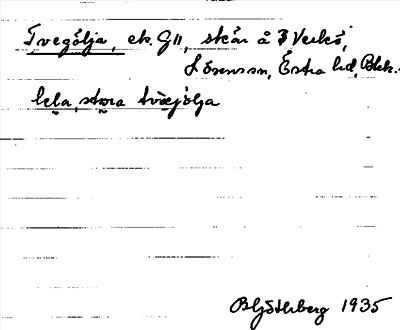 Tvegölja, ek. G11, skär å 3 Verkö,
Lösensn, Östra hd, Blek.
lela, stora tvæjölja
B Hjöthberg 1935